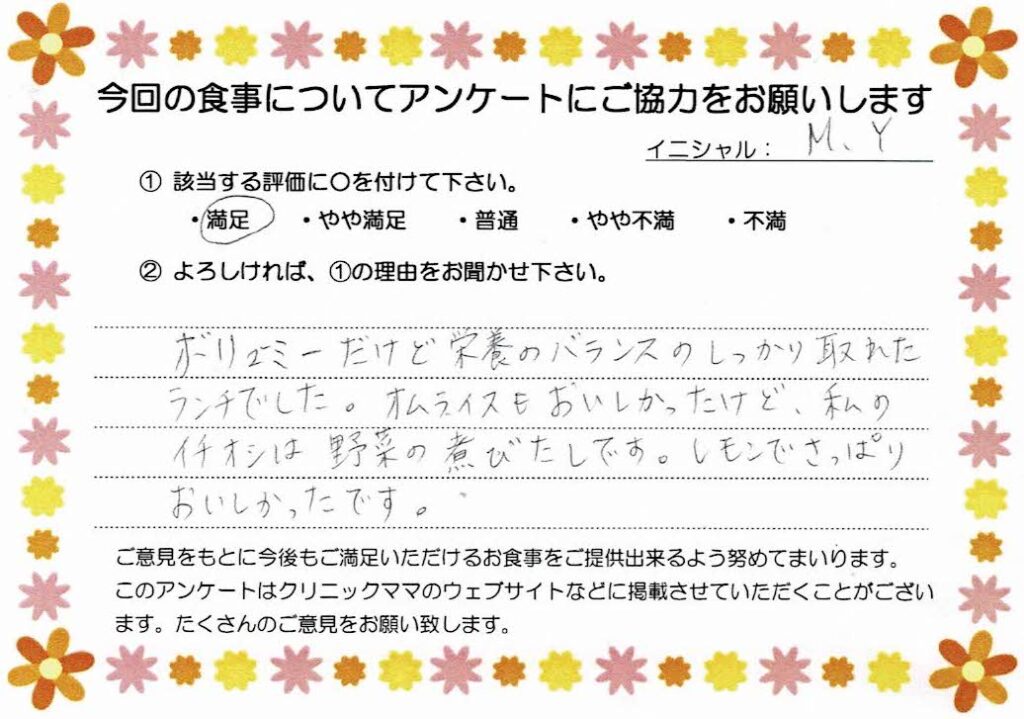 今回の食事についてアンケートにご協力をお願いします
イニシャル： M、Y
① 該当する評価に〇を付けて下さい。
・満足 ・やや満足 ・普通 ・やや不満 ・不満
② よろしければ、①の理由をお聞かせ下さい。
ボリュミーだけど栄養のバランスのしっかり取れた
ランチでした。オムライスもおいしかったけど、私の
イチオシは野菜の煮びたしです。レモンでさっぱり
おいしかったです。
ご意見をもとに今後もご満足いただけるお食事をご提供出来るよう努めてまいります。
このアンケートはクリニックママのウェブサイトなどに掲載させていただくことがござい
ます。たくさんのご意見をお願い致します。